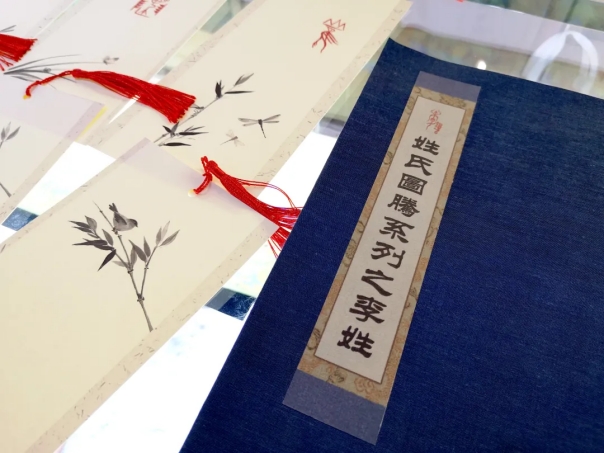 姓氏圖騰系列之李姓